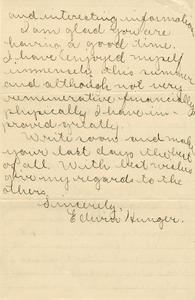 and interesting information
I am glad you are
having a good time.
I have enjoyed myself
immensely this summer
and although not very
remunerative financially
physically I have im-
proved vitally.
Write soon and make
your last days the best
of all. With best wishes
give my regards to the
others.
Sincerely,
Edwin Hunger.